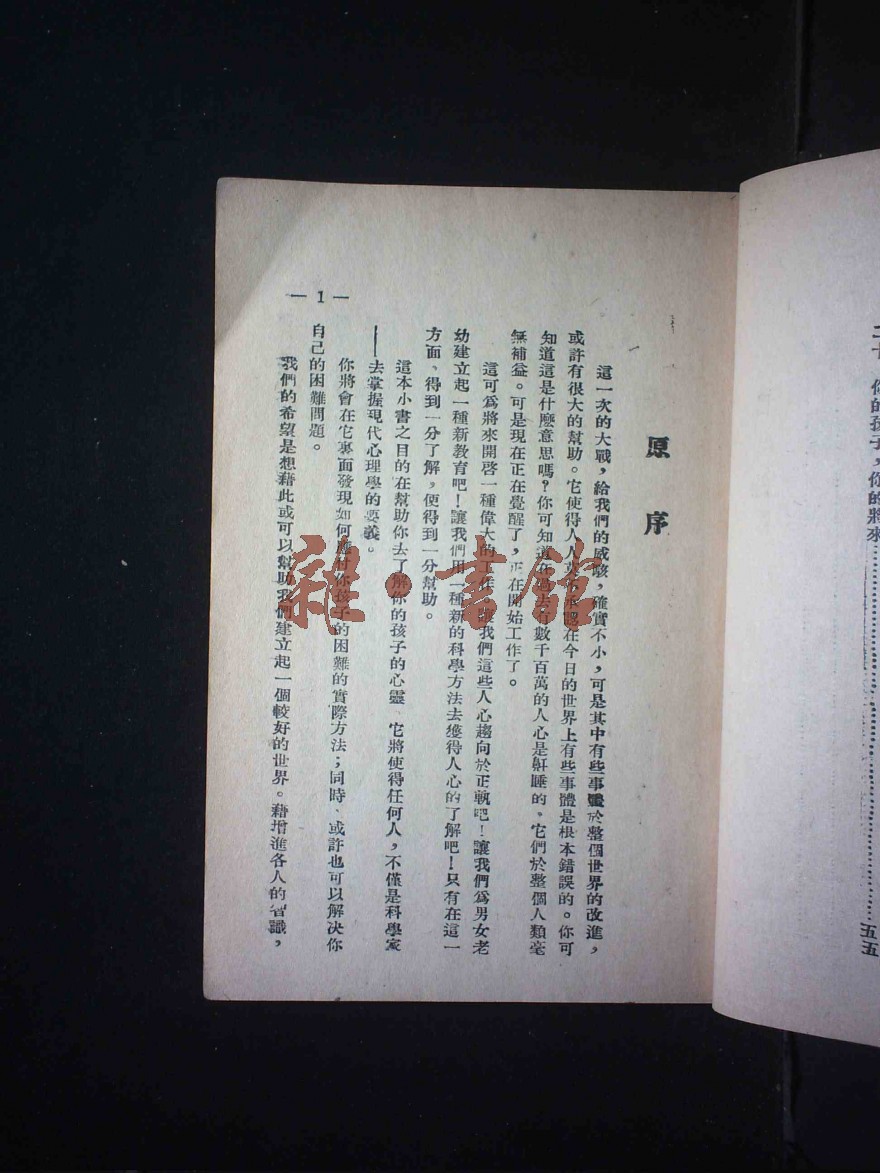 原序
這一次的大戰,給我們的感駭,確實不小,可是其中有些事體於整個世界的改進,
或許有很大的幫助。它使得人人莫不承認在今日的世界上有些事體是根本錯誤的。你可
知道這是什麼意思嗎?你可知道在過去有數千百萬的人心是鼾睡的,它們於整個人類毫
無補益。可是現在正在覺醒了,正在開始工作了。
這可爲將來開啓一種偉大的工作,讓我們這些人心趨向於正軌吧!讓我們爲男女老
幼建立起一種新教育吧!讓我們用一種新的科學方法去獲得人心的了解吧!只有在這一
方面,得到一分了解,便得到一分幫助。
這本小書之目的在幫助你去了解你的孩子的心靈 它將使得任何人,不僅是科學家
——去掌握現代心理學的要義。
你將會在它裏面發現如何應付你孩子的困難的實際方法;同時、或許也可以解決你
自己的困難問題。
我們的希望是想藉此或可以幫助我們建立起一個較好的世界。藉增進各人的智識,
— 1 —
二十 你的孩子,你的將來……五五
雜·書館